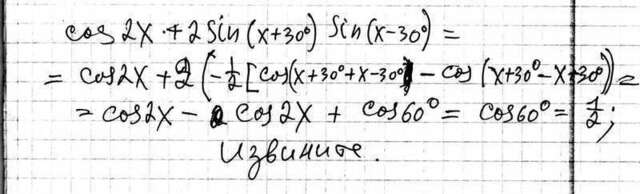 cos 2x + 2 Sin(x+30°) Sin(x-30°) =
= cos2x + 2 (-½ [cos(x+30°+x-30°) - cos (x+30°-x+30°)) =
= cos2x - cos 2x + cos60° = cos60° = ½;
Извините.